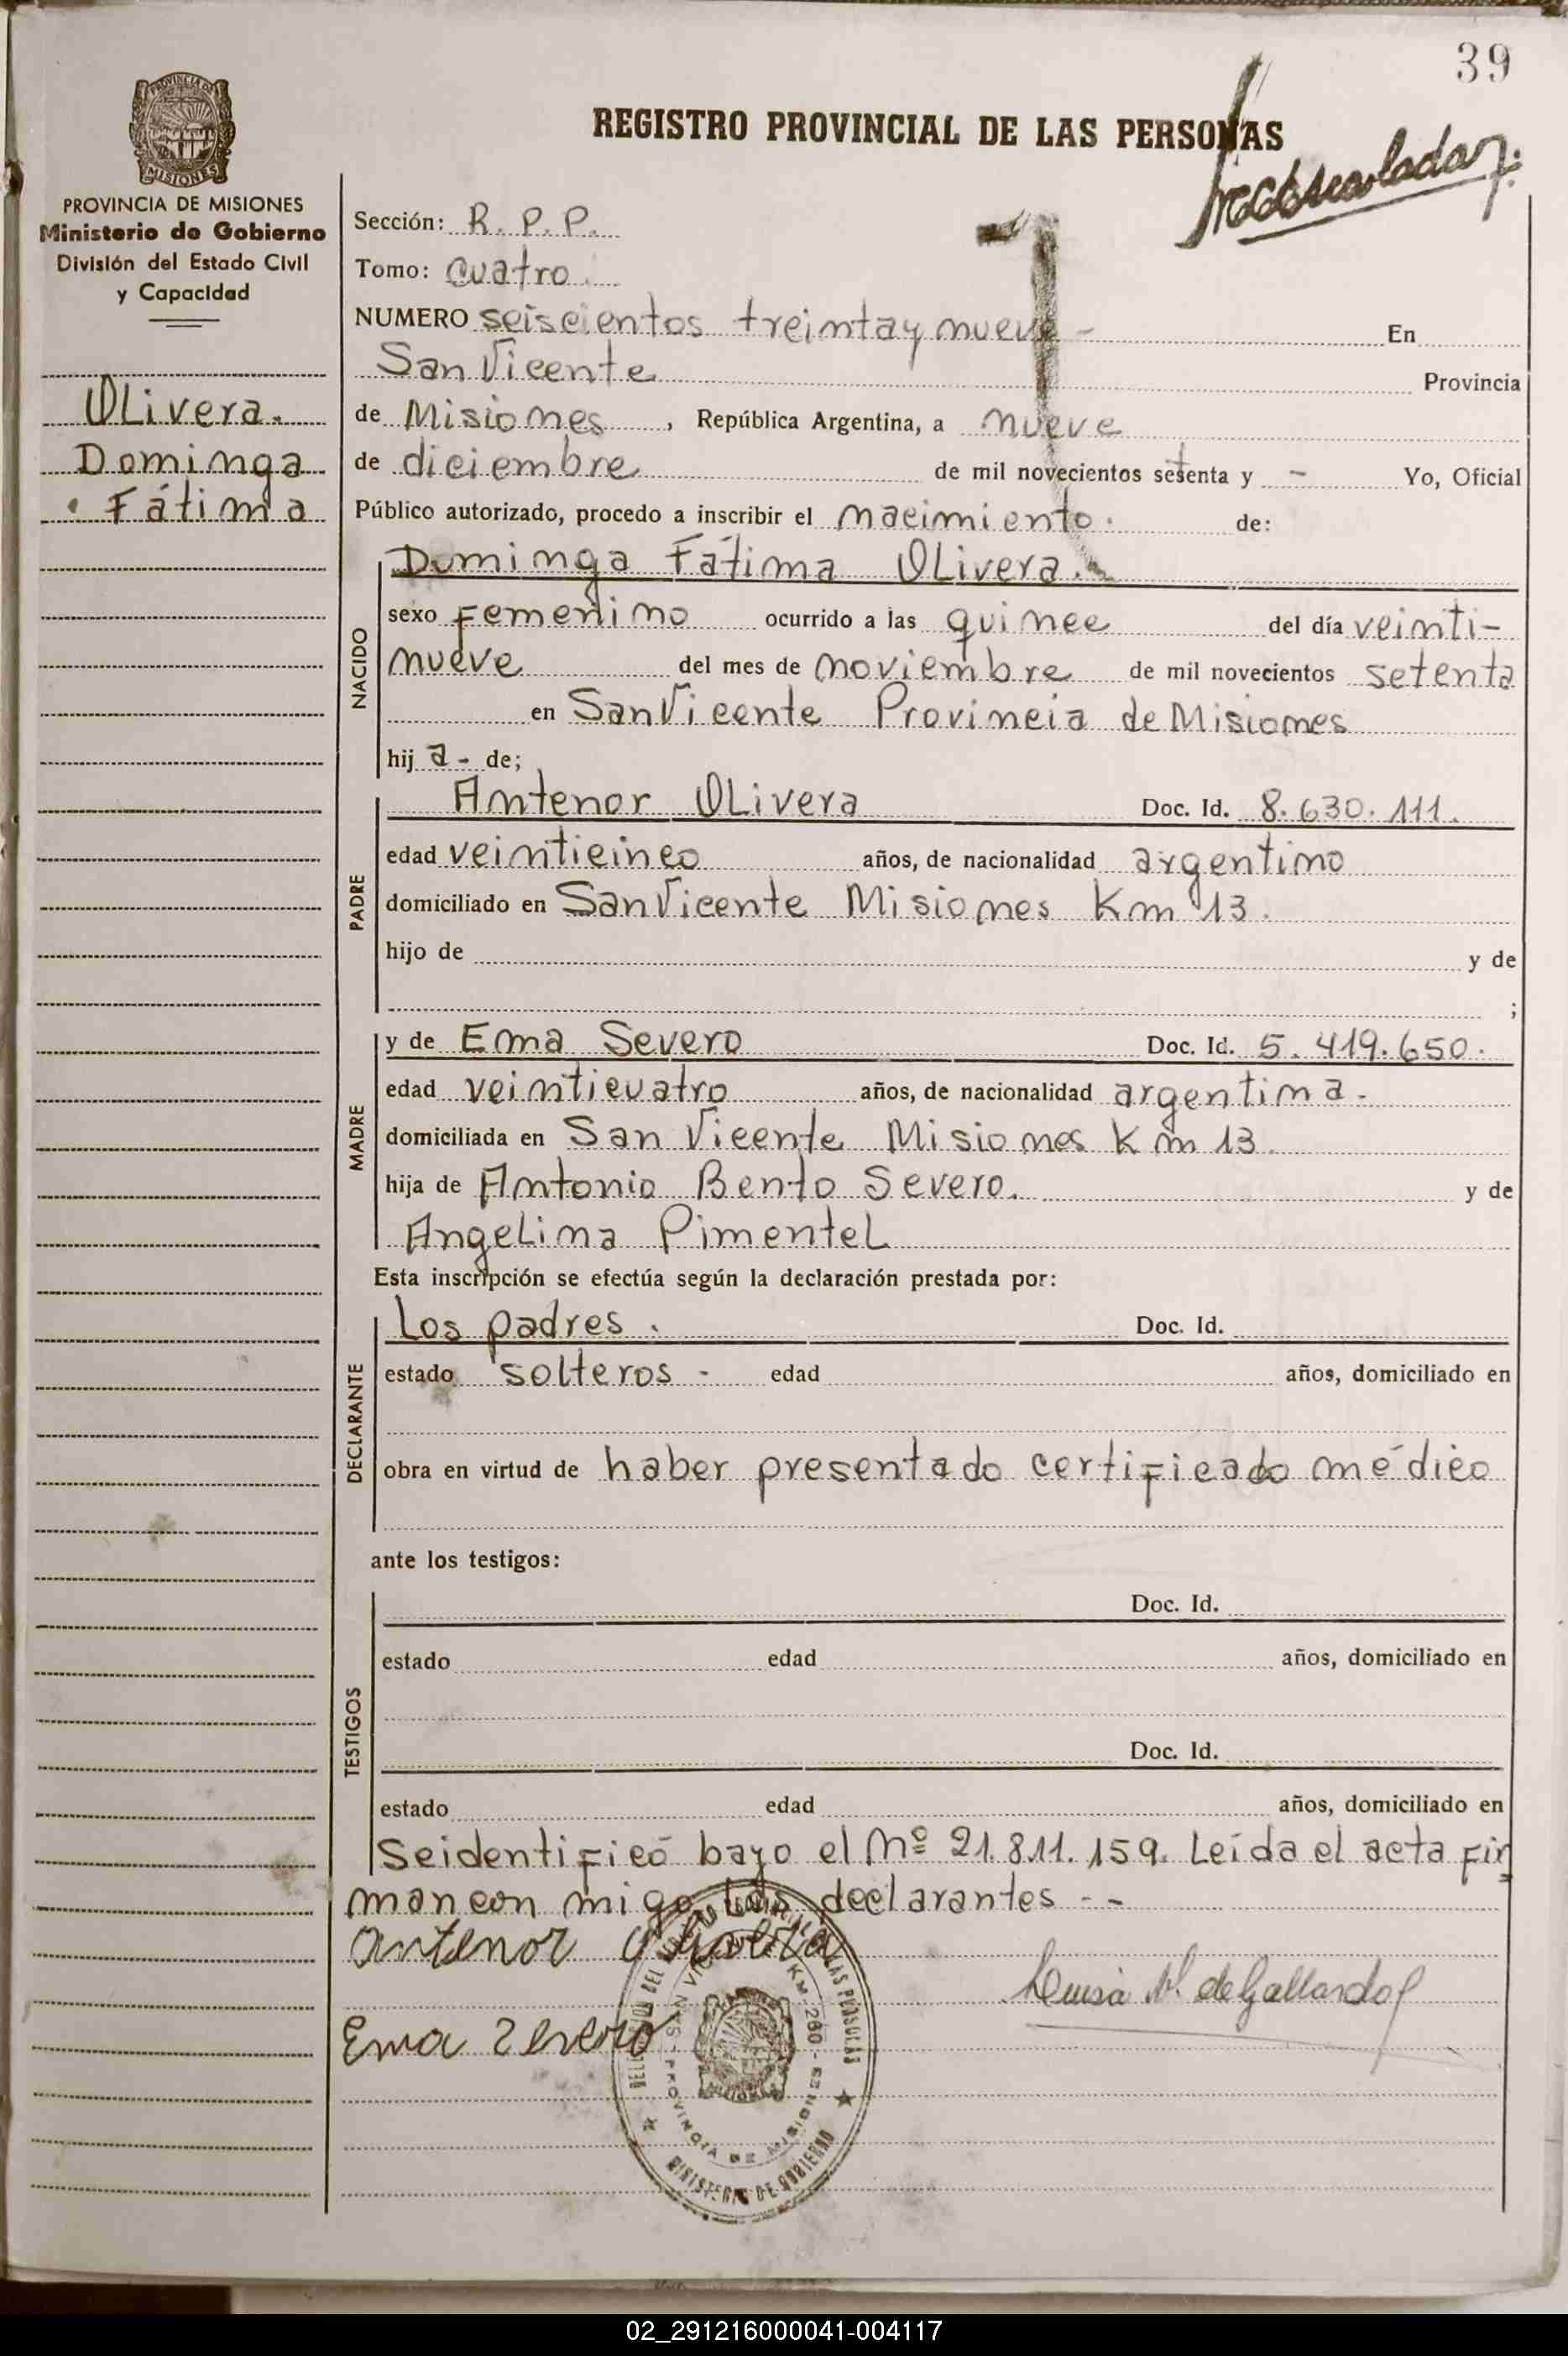 39
REGISTRO PROVINCIAL DE LAS PERSONAS
PROVINCIA DE
MISIONES
PROVINCIA DE MISIONES
Ministerio de Gobierno
División del Estado Civil
y Capacidad
Olivera.
Dominga
Fátima
Sección: R. P. P.
Tomo: cuatro.
NUMERO seiscientos treinta y nueve - En
San Vicente Provincia
de Misiones , República Argentina, a nueve
de diciembre de mil novecientos setenta y - Yo, Oficial
Público autorizado, procedo a inscribir el nacimiento. de:
NACIDO
Dominga Fátima Olivera.
sexo Femenino ocurrido a las quince del día veinti-
nueve del mes de noviembre de mil novecientos setenta
en San Vicente Provincia de Misiones
hij a - de;
PADRE
Antenor Olivera Doc. Id. 8.630.111.
edad veinticinco años, de nacionalidad argentino
domiciliado en San Vicente Misiones Km 13.
hijo de y de
;
MADRE
y de Ema Severo Doc. Id. 5.419.650.
edad veinticuatro años, de nacionalidad argentina.
domiciliada en San Vicente Misiones Km 13.
hija de Antonio Bento Severo. y de
Angelina Pimentel
Esta inscripción se efectúa según la declaración prestada por:
DECLARANTE
Los padres. Doc. Id.
estado solteros - edad años, domiciliado en
obra en virtud de haber presentado certificado médico
ante los testigos:
TESTIGOS
Doc. Id.
estado edad años, domiciliado en
Doc. Id.
estado edad años, domiciliado en
Se identificó bajo el Nº 21.811.159. Leída el acta fir
man con migo los declarantes - -
Antenor Olivera
Luisa de Gallardo
Ema Zevero
SAN VICENTE KM. 280 - PROVINCIA DE MISIONES
MINISTERIO DE GOBIERNO
02_291216000041-004117